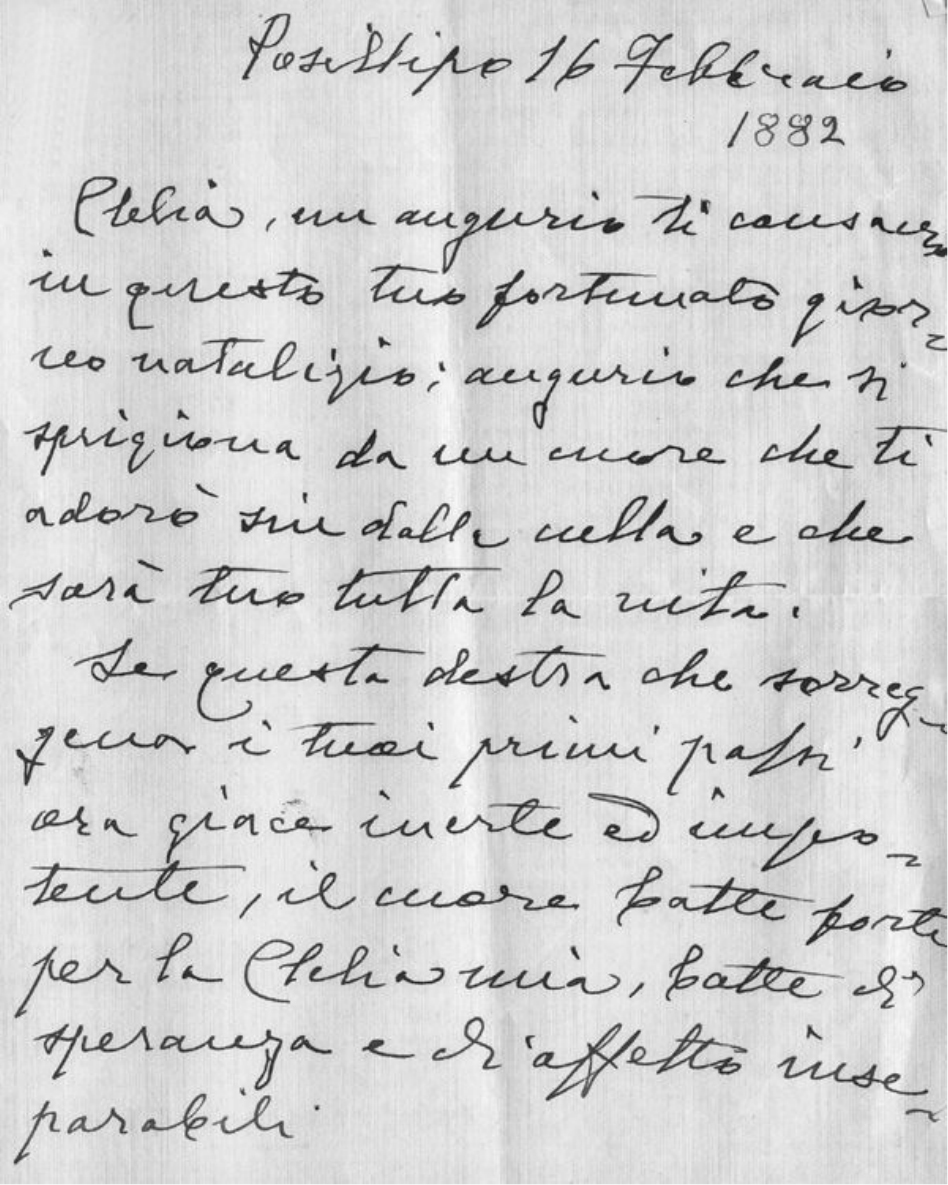 Posillipo 16 Febbraio
1882
Clelia, un augurio ti consacro
in questo tuo fortunato gior-
no natalizio; augurio che si
sprigiona da un cuore che ti
adorò sin dalla culla e che
sarà tuo tutta la vita.
Se questa destra che sorreg-
geva i tuoi primi passi
ora giace inerte ed impo-
tente, il cuore batte forte
per la Clelia mia, batte di
speranza e di affetto inse-
parabili